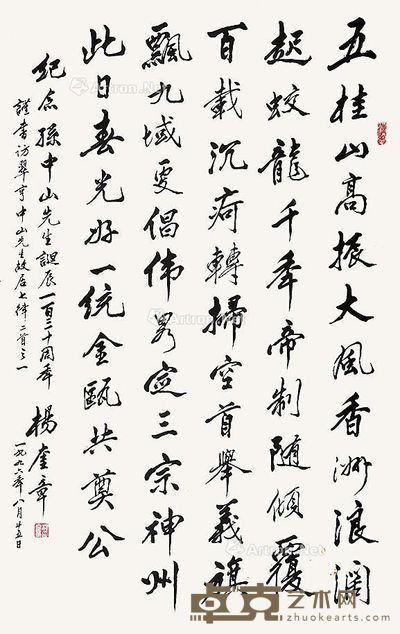 五桂山高振大風香洲浪阔
起蛟龍千年帝制随傾覆
百載沉疴轉掃空首舉義旗
飄九域更倡偉畧定三宗神州
此日春光好一統金甌共奠公
纪念孫中山先生誕辰一百三十周年
謹書访翠亨中山先生故居七律二首之一
楊奎章
一九九六年八月廿五日
卓克艺术网
zhuokearts.com